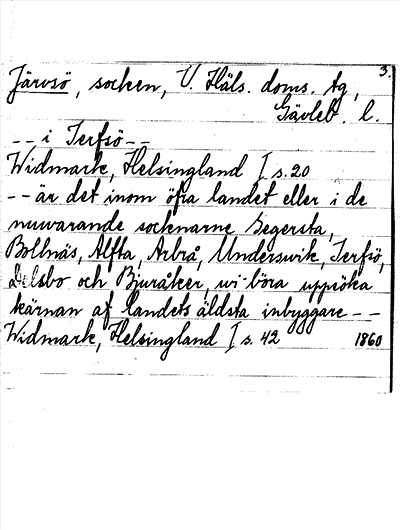 3.
Järvsö, socken, V. Häls. doms. tg,
Gävleb. l.
-- i Jerfsö --
Widmark, Helsingland I s. 20
-- är det inom öfra landet eller i de
nuvarande socknarne Segersta,
Bollnäs, Alfta, Arbrå, Undersvik, Jerfsö,
Delsbo och Bjuråker, vi böra uppsöka
kärnan af landets äldsta inbyggare --
Widmark, Helsingland I s. 42 1860